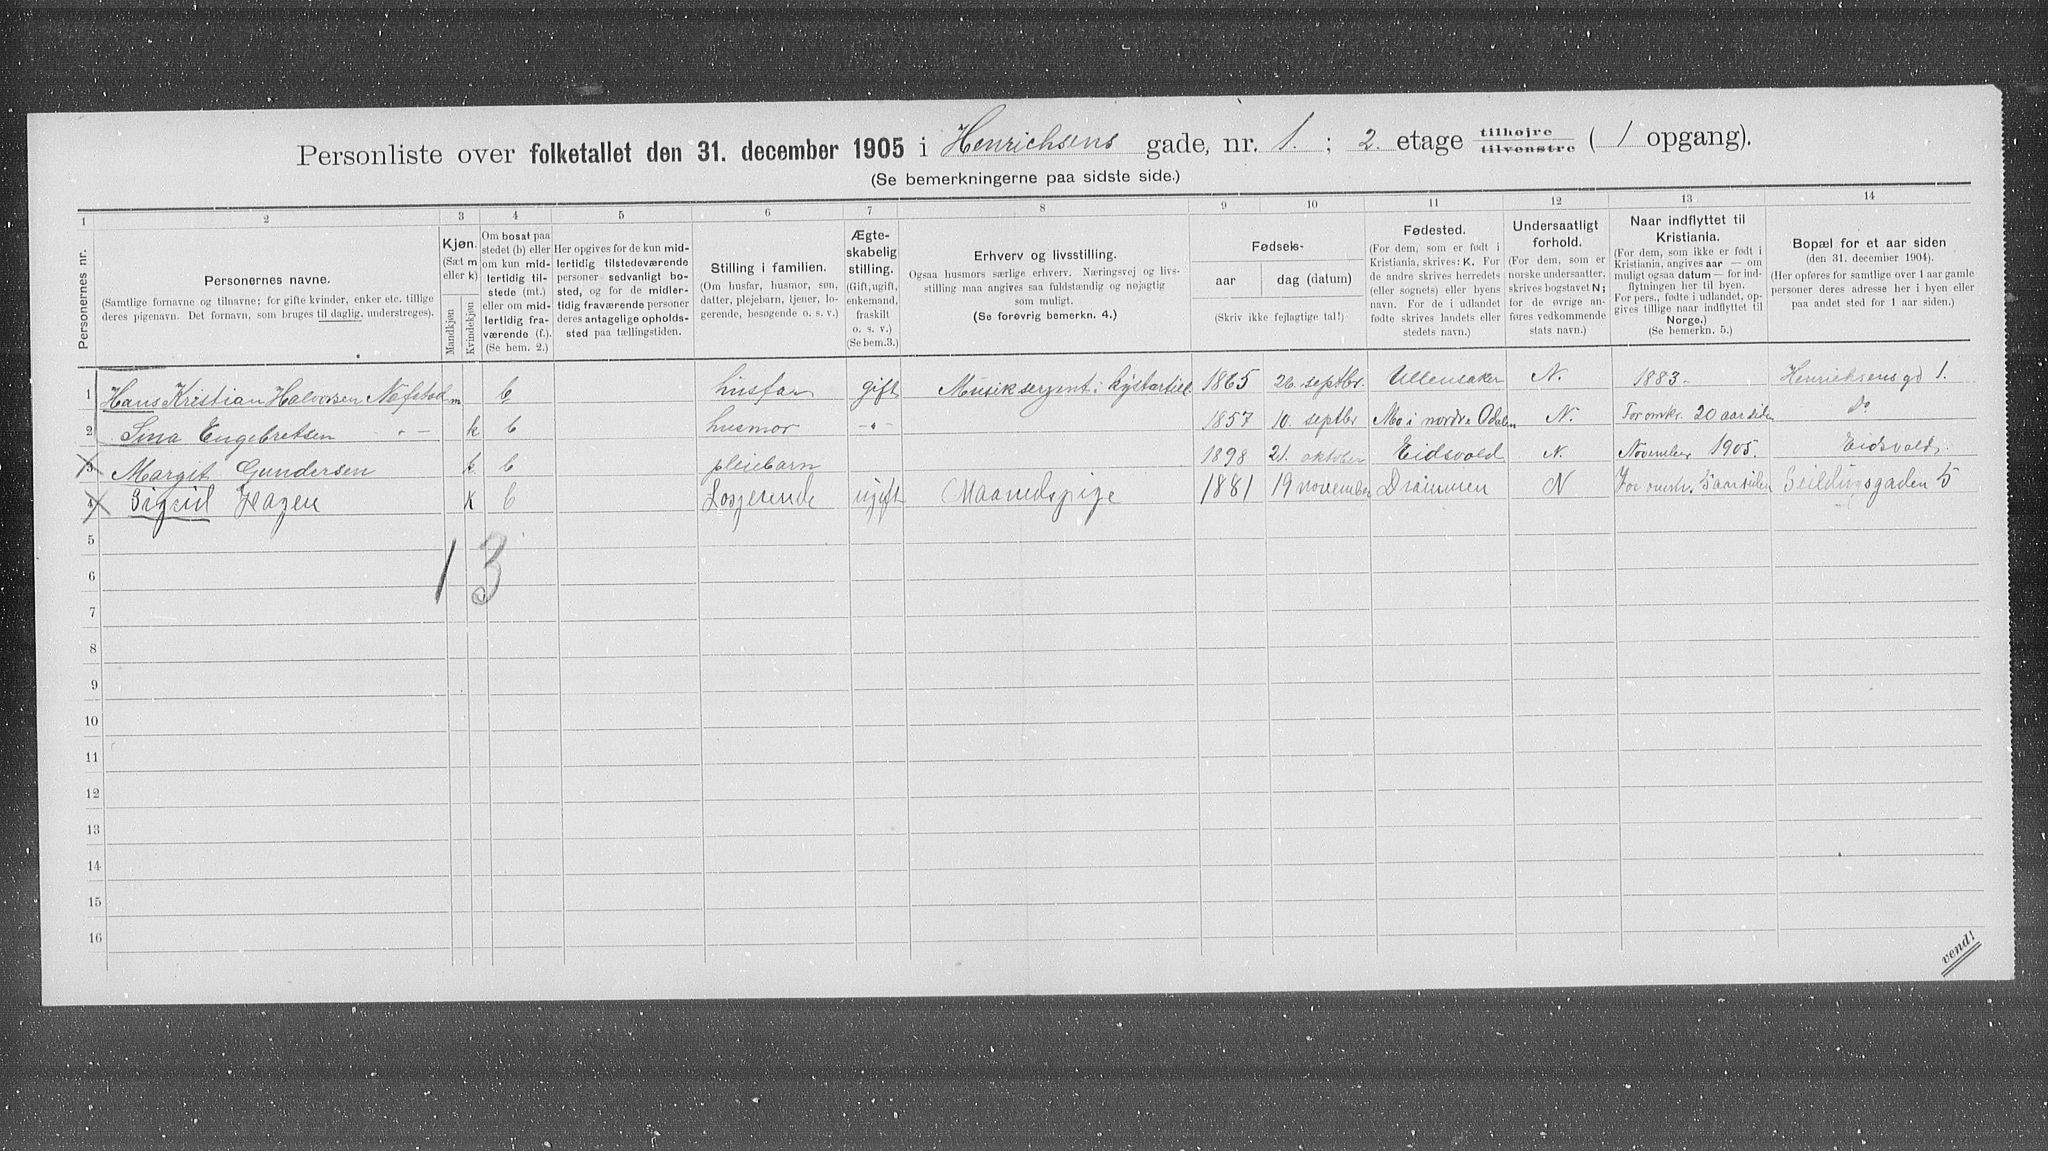 Personliste over folketallet den 31. december 1905 i Henrichsens gade, nr. 1. ; 2. etage tilhøjre tilvenstre ( 1 opgang).
(Se bemerkningerne paa sidste side.)
1 2 3 4 5 6 7 8 9 10 11 12 13 14
Personernes nr.
Personernes navne.
(Samtlige fornavne og tilnavne; for gifte kvinder, enker etc. tillige
deres pigenavn. Det fornavn, som bruges til daglig, understreges).
Kjøn.
(Sæt m
eller k)
Mandkjøn
Kvindekjøn
Om bosat paa
stedet (b) eller
om kun mid-
lertidig til-
stede (mt.)
eller om mid-
lertidig fra-
værende (f.).
(Se bem. 2.)
Her opgives for de kun mid-
lertidig tilstedeværende
personer sedvanlig bo-
sted, og for de midler-
tidig fraværende personer
deres antagelige opholds-
sted paa tællingstiden.
Stilling i familien.
(Om husfar, husmor, søn,
datter, plejebarn, tjener, lo-
gerende, besøgende o. s. v.)
Ægte-
skabelig
stilling.
(Gift, ugift,
enkemand,
fraskilt
o. s. v.)
(Se bem.3.)
Erhverv og livsstilling.
Ogsaa husmors særlige erhverv. Næringsvej og livs-
stilling maa angives saa fuldstændig og nøjagtig
som muligt.
(Se forøvrig bemerkn. 4.)
Fødsels-
aar dag (datum)
(Skriv ikke fejlagtige tal!)
Fødested.
(For dem, som er født i
Kristiania, skrives: K. For
de andre skrives herredets
(eller sognets) eller byens
navn. For de i udlandet
fødte skrives landets eller
stedets navn.)
Undersaatligt
forhold.
(For dem, som er
norske undersaatter,
skrives bogstavet N;
for de øvrige an-
føres vedkommende
stats navn.)
Naar indflyttet til
Kristiania.
(For dem, som ikke er født i
Kristiania, angives aar — om
muligt ogsaa datum — for ind-
flytningen her til byen.
For pers., fødte i udlandet, op-
gives tillige naar indflyttet til
Norge.)
(Se bemerkn. 5.)
Bopæl for et aar siden
(den 31. december 1904).
(Her opføres for samtlige over 1 aar gamle
personer deres adresse her i byen eller
paa andet sted for 1 aar siden.)
1 Hans Kristian Halvorsen m b husfar gift Musiksergent i kystartill 1865 26. septbr. Ullensaker N. 1883. Henrichsens gd 1.
2 Sina Engebretsen - " - k b husmor - " - 1857 10. septbr Mo i nordre Odalen N. For omkr. 20 aar siden Do
3 Margit Gundersen k b pleiebarn 1898 21. oktober Eidsvold N. November 1905. Eidsvold.
4 Sigrid Hagen k b Losjerende ugift Maanedspige 1881 19 november Drammen N For omtr. aar siden Seildugsgaden 5
5
6
1 3
7
8
9
10
11
12
13
14
15
16
vend!